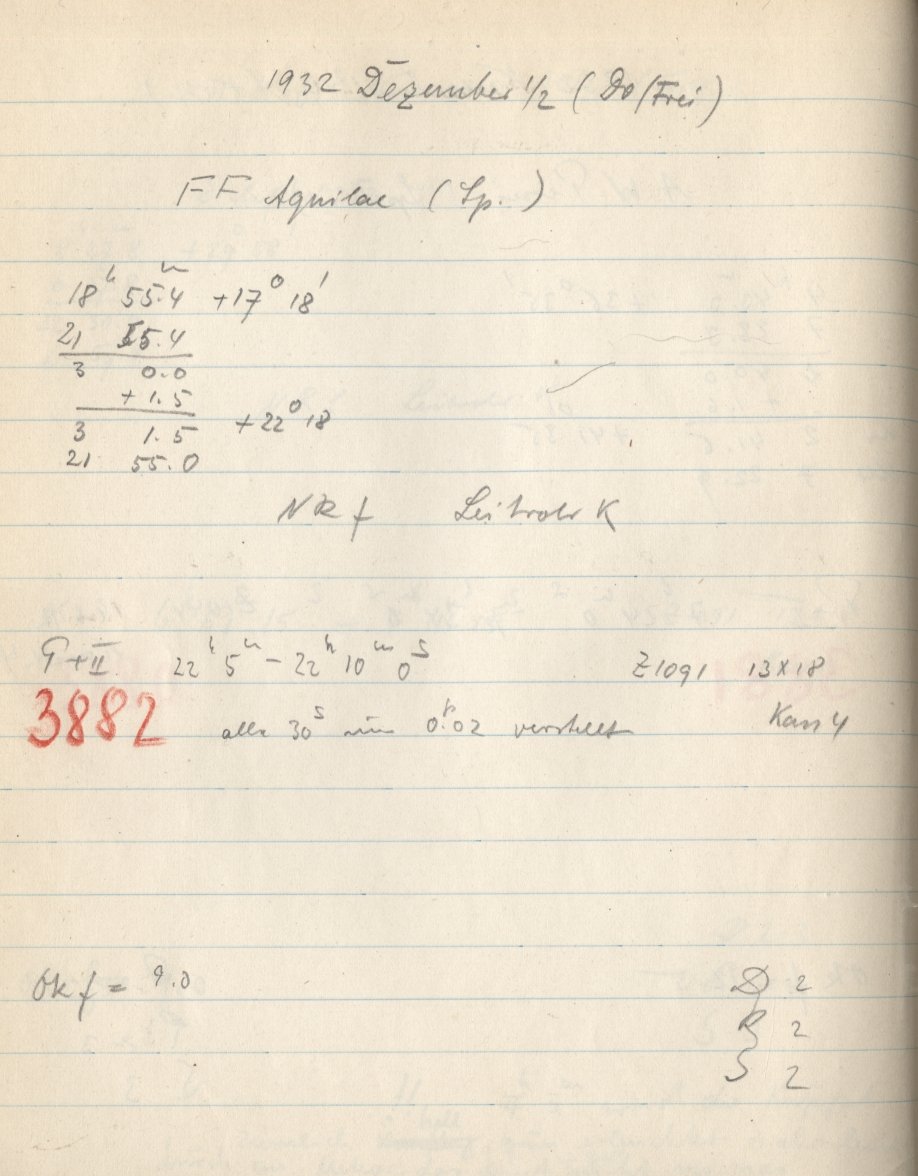 1932 Dezember 1/2 (Do/Frei)
FF Aquilae (Sp.)
18h 55m.4 +17° 18'
21 55.4
3 0.0
+ 1.5
3 1.5 +22° 18
21 55.0
NR f Leitrohr K
T+II 22h 5m – 22h 10m 0s Z1091 13x18
3882 alle 30s um 0R.02 verstellt Kass 4
Ok f = 9.0 D 2
R 2
S 2